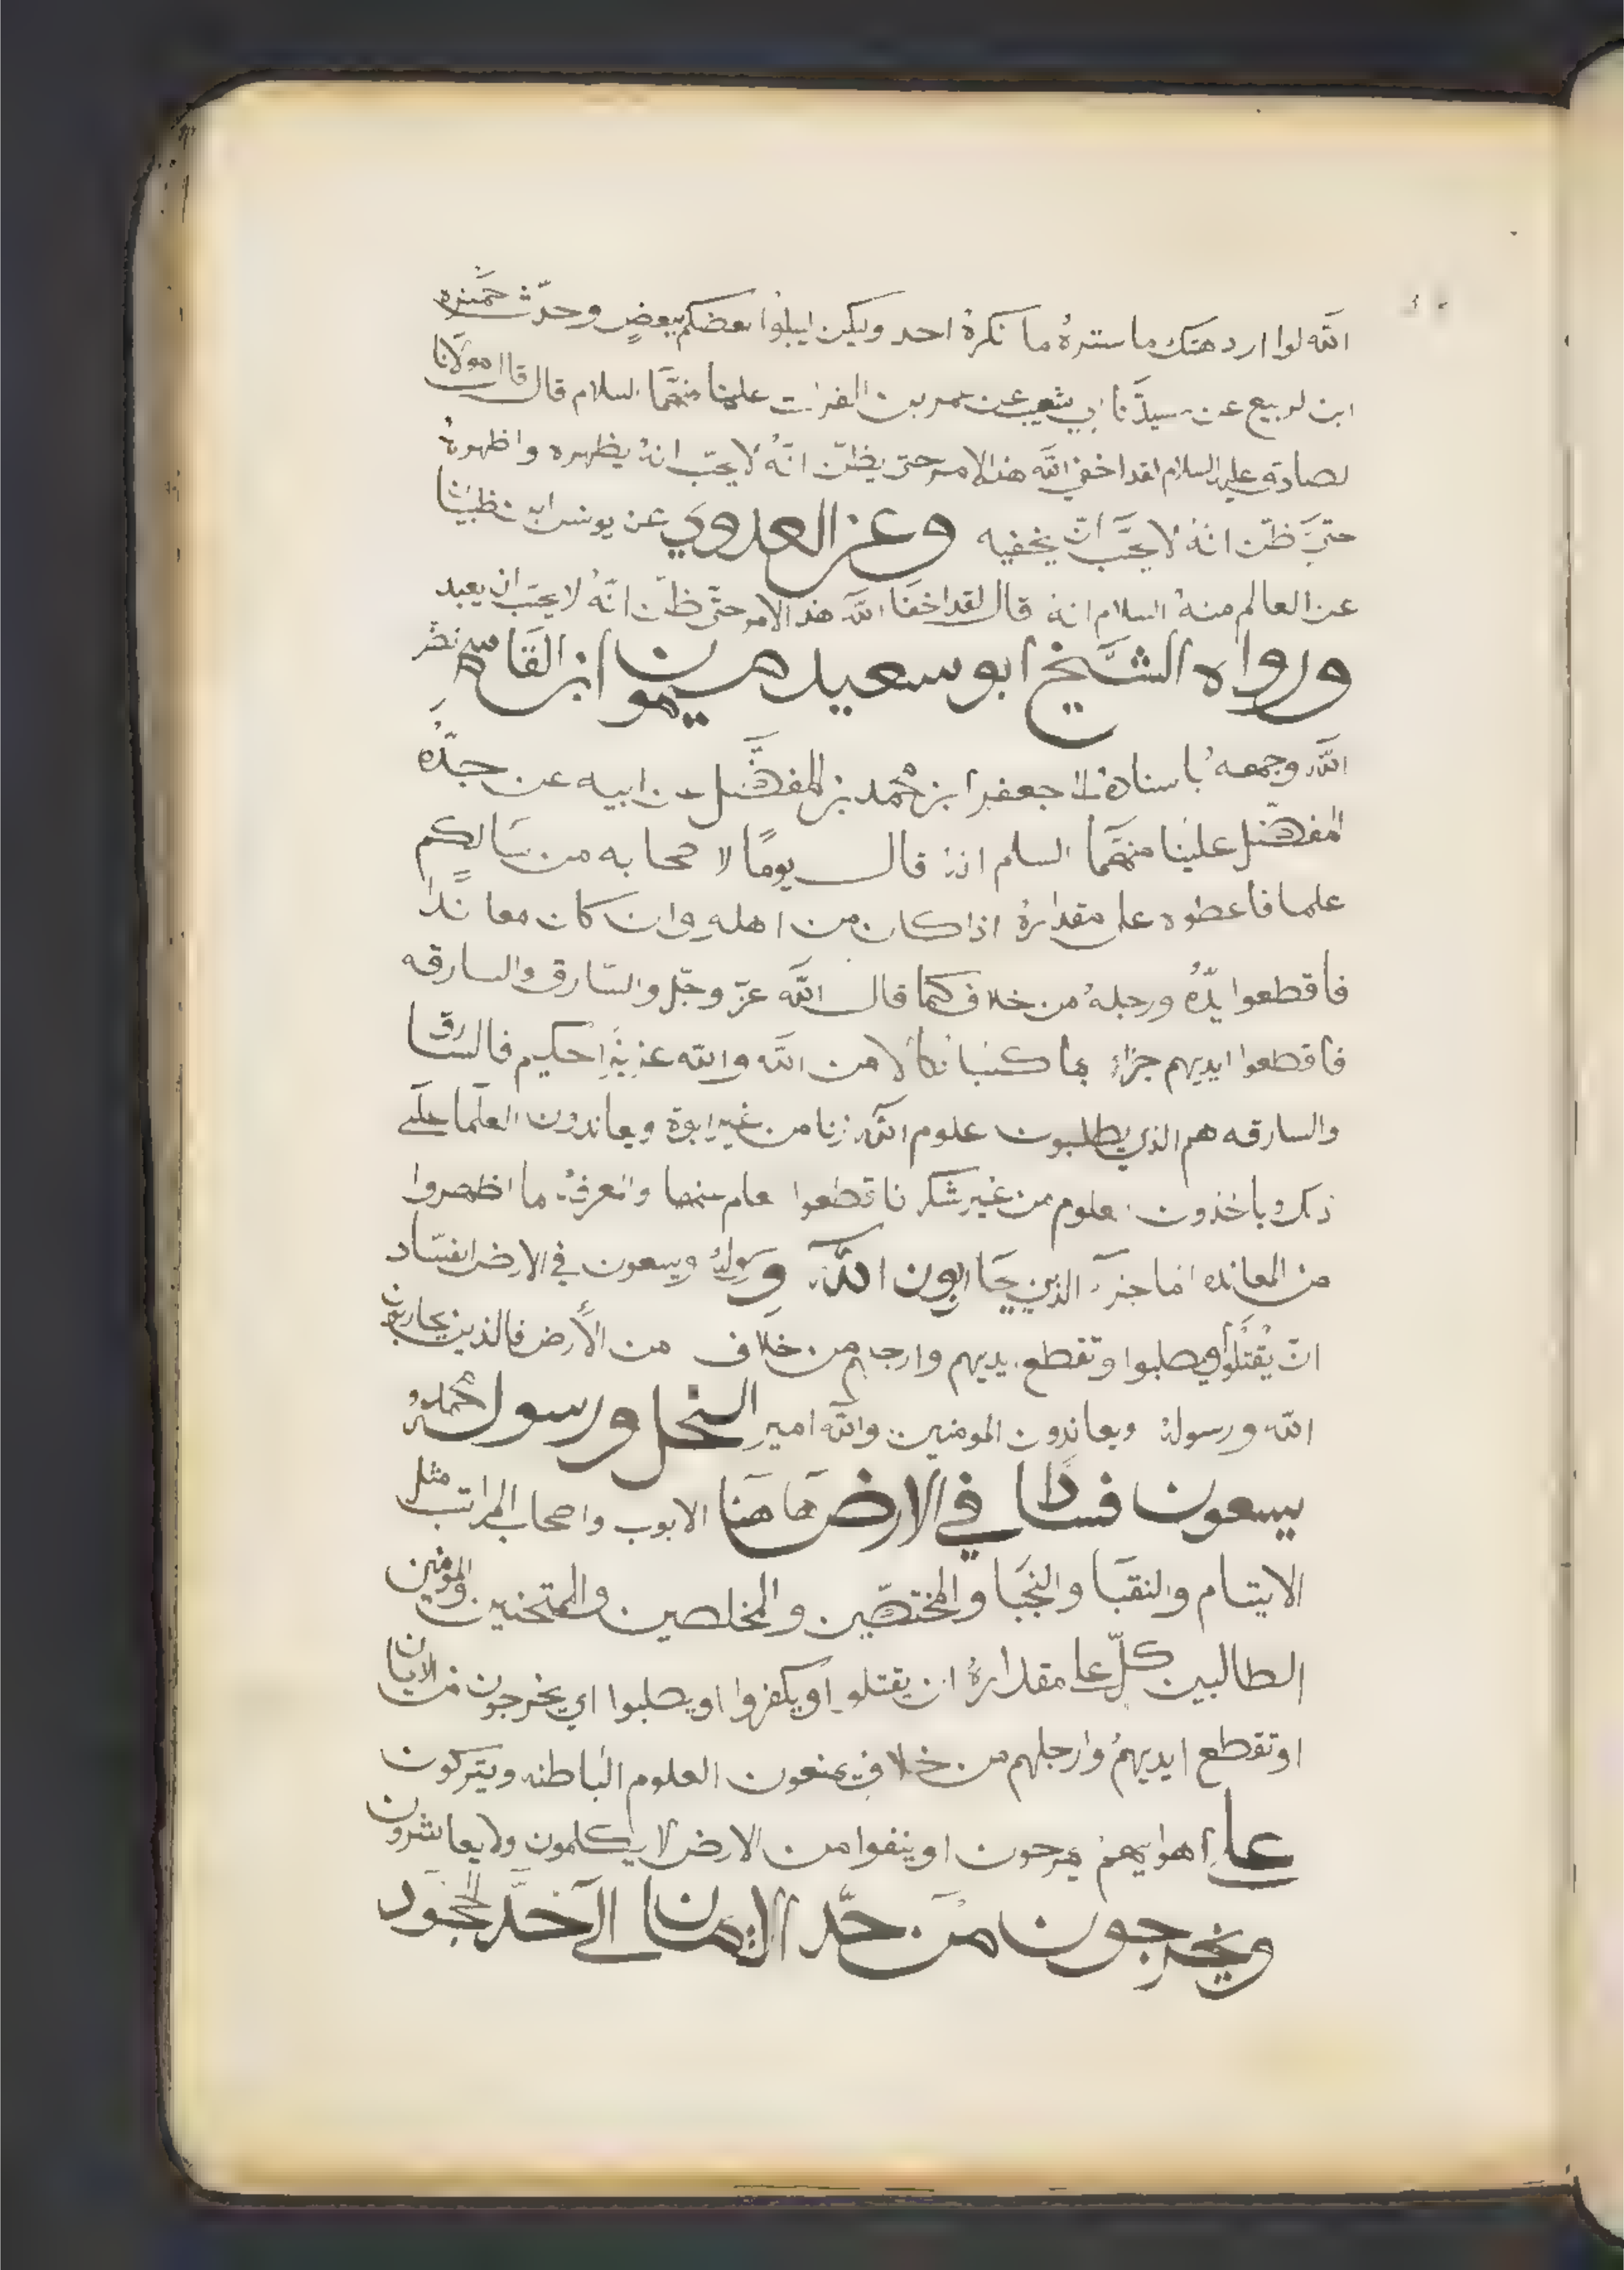 الله لوا اراد هتك ما ستره ما نكره احد وليكن ليبلوا بعضكم ببعضٍ وحدّث حمزه
ابن لربيع عن سيدَّنا ابي شعيب عن عمر بن الفرات علينا منهَّما السلام قال قال مولانا
لصادق عليه السلام لقد اخفي الله هذا الامر حتى يظنّ انّهُ لا يحبّ انهُ يظهره واظهرهُ
حتّيَ ظنّ انّهُ لا يحبَّ انّ يخفيه وعن العدوي عن يونس ابن ظبيَّان
عن العالم منهُ السلام انهُ قال لقد اخفا الله هذا الامر حتّي ظنّ انّهُ لا يحبّ ان يعبد
ورواه الشَّيخ ابو سعيد ميمون ابن القَاسم نضّر
الله وجهه باسنادهُ الى جعفر ابن محُمد بن المفضَّل عن ابيه عن جدّه
المفضّل علينا منهَّما السلم انهُ قال يومًا لاصحابه من سَالكم
علما فاعطوه على مقدارهُ اذا كان من اهله وان كان معاندًا
فاقطعوا يدّهُ ورجلهُ من خلاف كما قال الله عزّ وجّل والسّارق والسارقه
فاقطعوا ايديهم جزاءً بما كسبا نكالا من الله والله عزيزٌ حكيم فالسارق
والسارقه هم الذي يطلبون علوم الله زنا من غير ابوة ويعاندون العلمَا علَي
ذلك وياخذون علومهم من غير شكر فاقطعوا عامهم منها والعرفهُ ما اظهروا
من المعانده انما جزَآء الذين يحَاربون الله ورسولهُ ويسعون في الارض الفسّاد
انّ يُقتَّلوا او يصلبوا وتقطع يديهم وارجلهم من خلاف من الأرض فالذين يحاربون
الله ورسولهُ ويعاندون المومنين والله امير النحل ورسولهُ محمد
يسعون فسادًا في الارض هَا هنَا الابوب واصحاب المراتب مثل
الايتام والنقبَا والنجبَا والمختصّين والمخلصين والممتحنين والمومنين
الطالبين كلّ على مقدارهُ ان يقتلو او يكفروا او يصلبوا اي يخرجون من الايمان
او تقطع ايديهمُ وارجلهم من خلاف يمنعون العلوم الباطنه ويتركون
على اهوايهم يمرحون او ينفوا من الارض لا يكلمون ولا يعاشرون
ويخرجون منَ حدّ الايمان الى حدَّ الجحَود